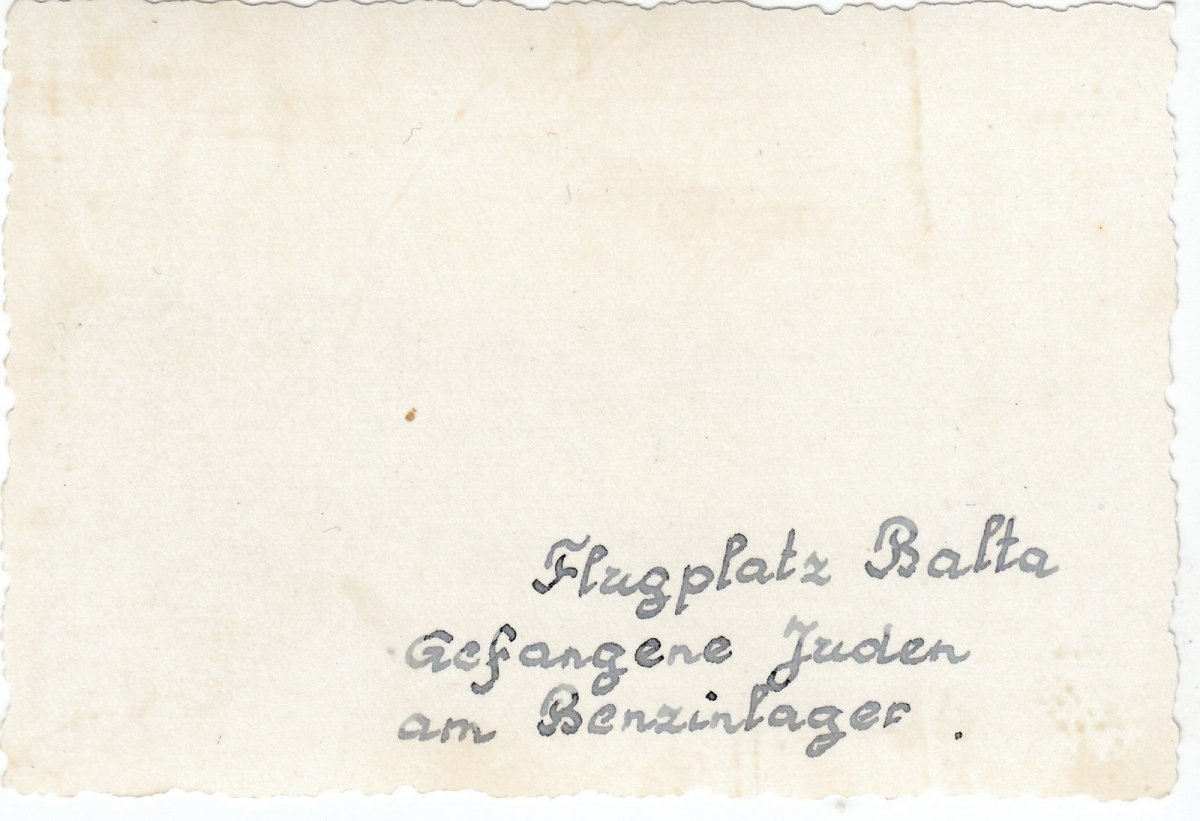 Flugplatz Balta
Gefangene Juden
am Benzinlager.